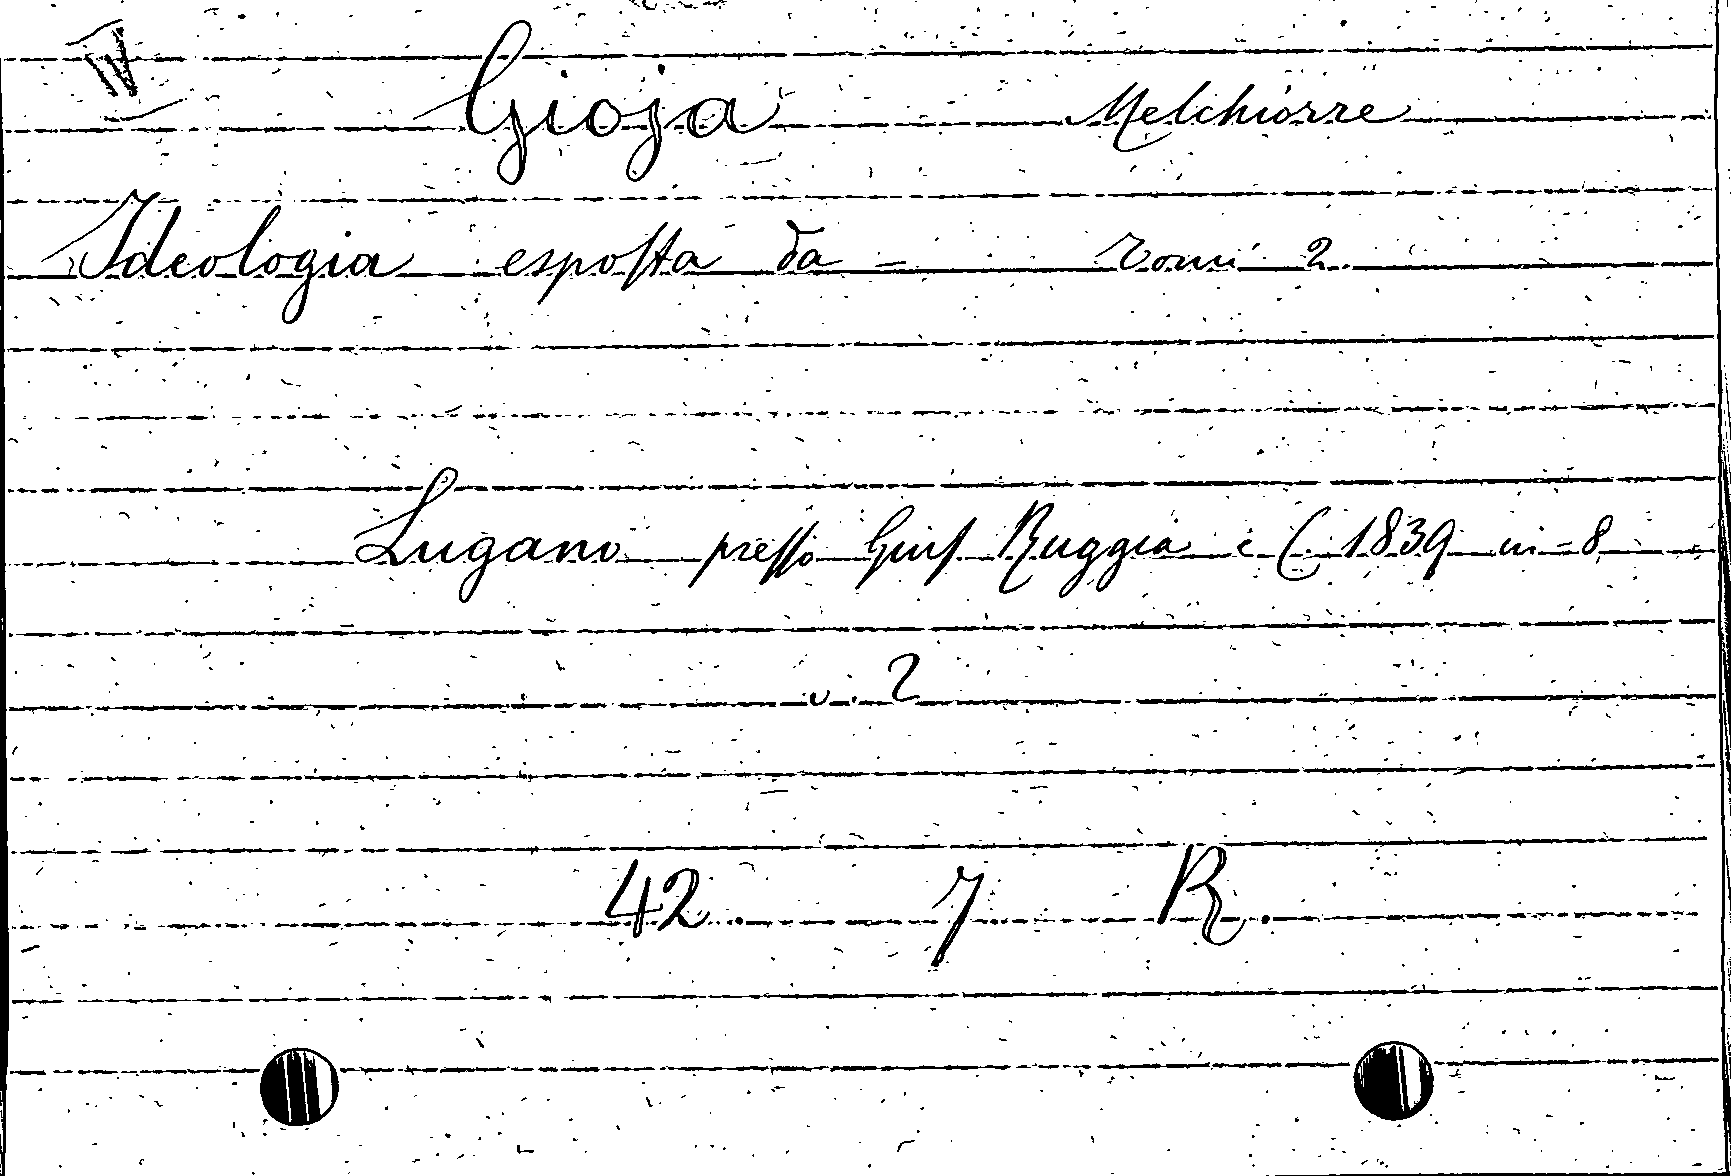 IV
Gioja Melchiorre
Ideologia esposta da - Tomi 2.
Lugano presso Gius Ruggia e C. 1839 in-8
v. 2
42. 7 R.